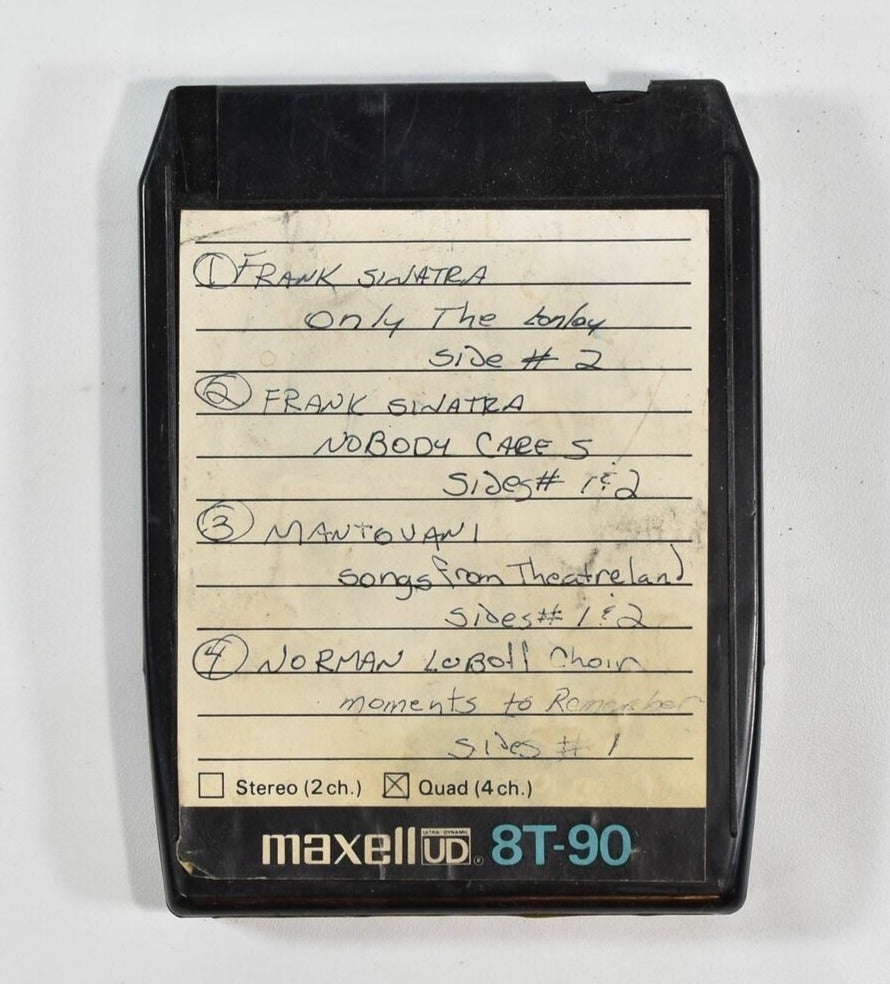 ① FRANK SINATRA
only The Lonley
Side # 2
② FRANK SINATRA
NOBODY CARES
Sides# 1 & 2
③ MANTOVANI
songs from Theatreland
Sides# 1 & 2
④ NORMAN LUBOff Choir
moments to Remember
Sides # 1
Stereo (2 ch.) ☒ Quad (4 ch.)
maxell ULTRA DYNAMIC UD® 8T-90